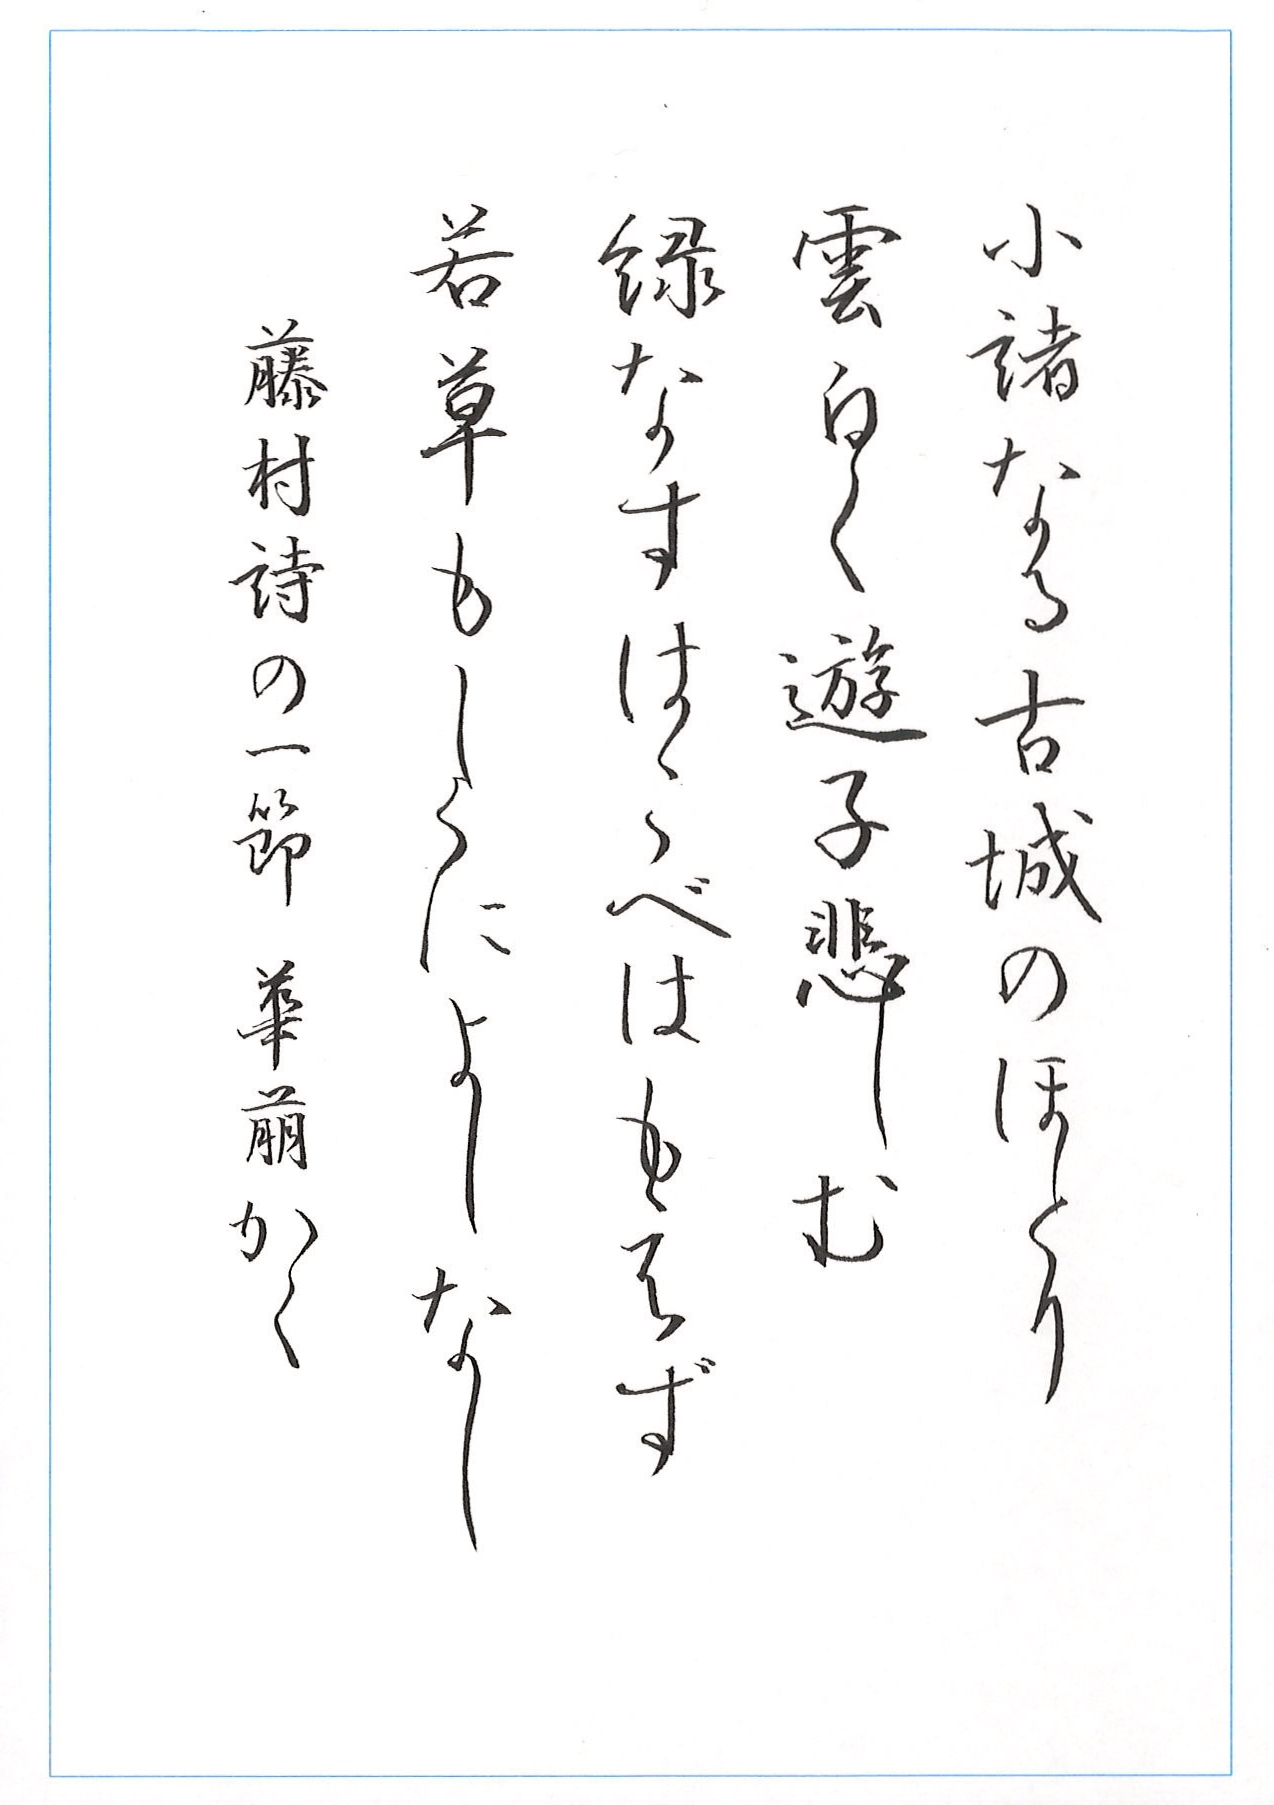 小諸なる古城のほとり
雲白く遊子悲しむ
緑なすはこべはもえず
若草もしくによしなし
藤村詩の一節 華萠かく